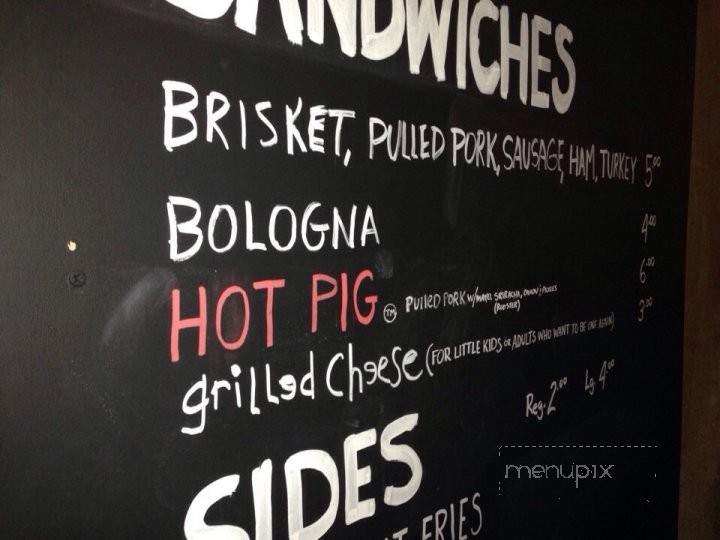 SANDWICHES
BRISKET, PULLED PORK, SAUSAGE, HAM, TURKEY 5.00
BOLOGNA 4.00
HOT PIG ™ PULLED PORK w/ SRIRACHA, ONION 6.00
(ROOSTER)
grillEd ChEESE (FOR LITTLE KIDS or ADULTS WHO WANT TO BE ONE AGAIN) 3.00
Reg. 2.00 Lg. 4.00
SIDES
FRIES
menupix